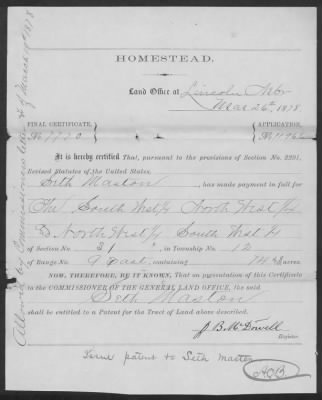 HOMESTEAD.
Land Office at Lincoln Nebr
Mar 26th, 1878
FINAL CERTIFICATE, APPLICATION,
No.
It is hereby certified That, pursuant to the provisions of Section No. 2291,
Revised Statutes of the United States,
Seth Maston, has made payment in full for
The South West ¼ North West ¼
& North West ¼ South West ¼
of Section No. 31, in Township No. 12
of Range No. 9 East, containing 74 acres.
NOW, THEREFORE, BE IT KNOWN, That on presentation of this Certificate
to the COMMISSIONER OF THE GENERAL LAND OFFICE, the said
Seth Maston
shall be entitled to a Patent for the Tract of Land above described.
J. B. McDowell
Register.
Issue patent to Seth Maston
Allowed by Commissioners letter of March 19th 1878